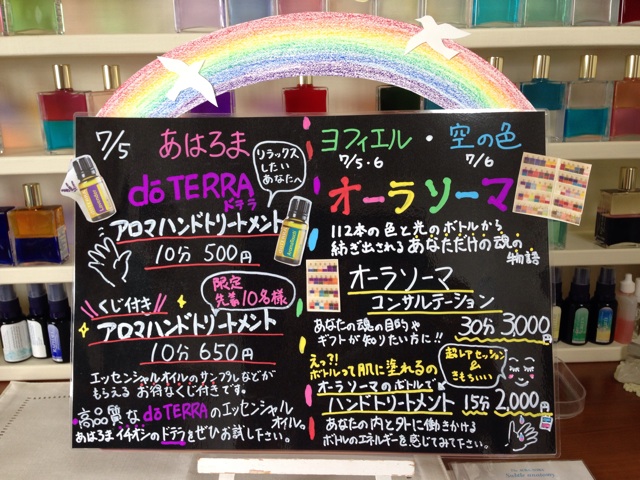 7/5 あはろま
リラックス
したい
あなたへ
dōTERRA
ドテラ
アロマハンドトリートメント
10分 500円
限定
先着10名様
くじ付き
アロマハンドトリートメント
10分 650円
エッセンシャルオイルのサンプルなどが
もらえる お得なくじ付きです。
高品質なdōTERRAのエッセンシャル
オイル。
あはろまイチオシのドテラをぜひお試し下さい。
ヨフィエル・空の色
7/5・6 7/6
オーラソーマ
112本の色と光のボトルから
紡ぎ出されるあなただけの魂の
物語
オーラソーマ
コンサルテーション
あなたの魂の目的や
ギフトが知りたい方に!!
30分 3,000円
えっ?!
ボトルって肌に塗れるの
オーラソーマのボトルで
ハンドトリートメント 15分 2,000円
超レアセッション
&
きもちいい
あなたの内と外に働きかける
ボトルのエネルギーを感じてみて下さい。